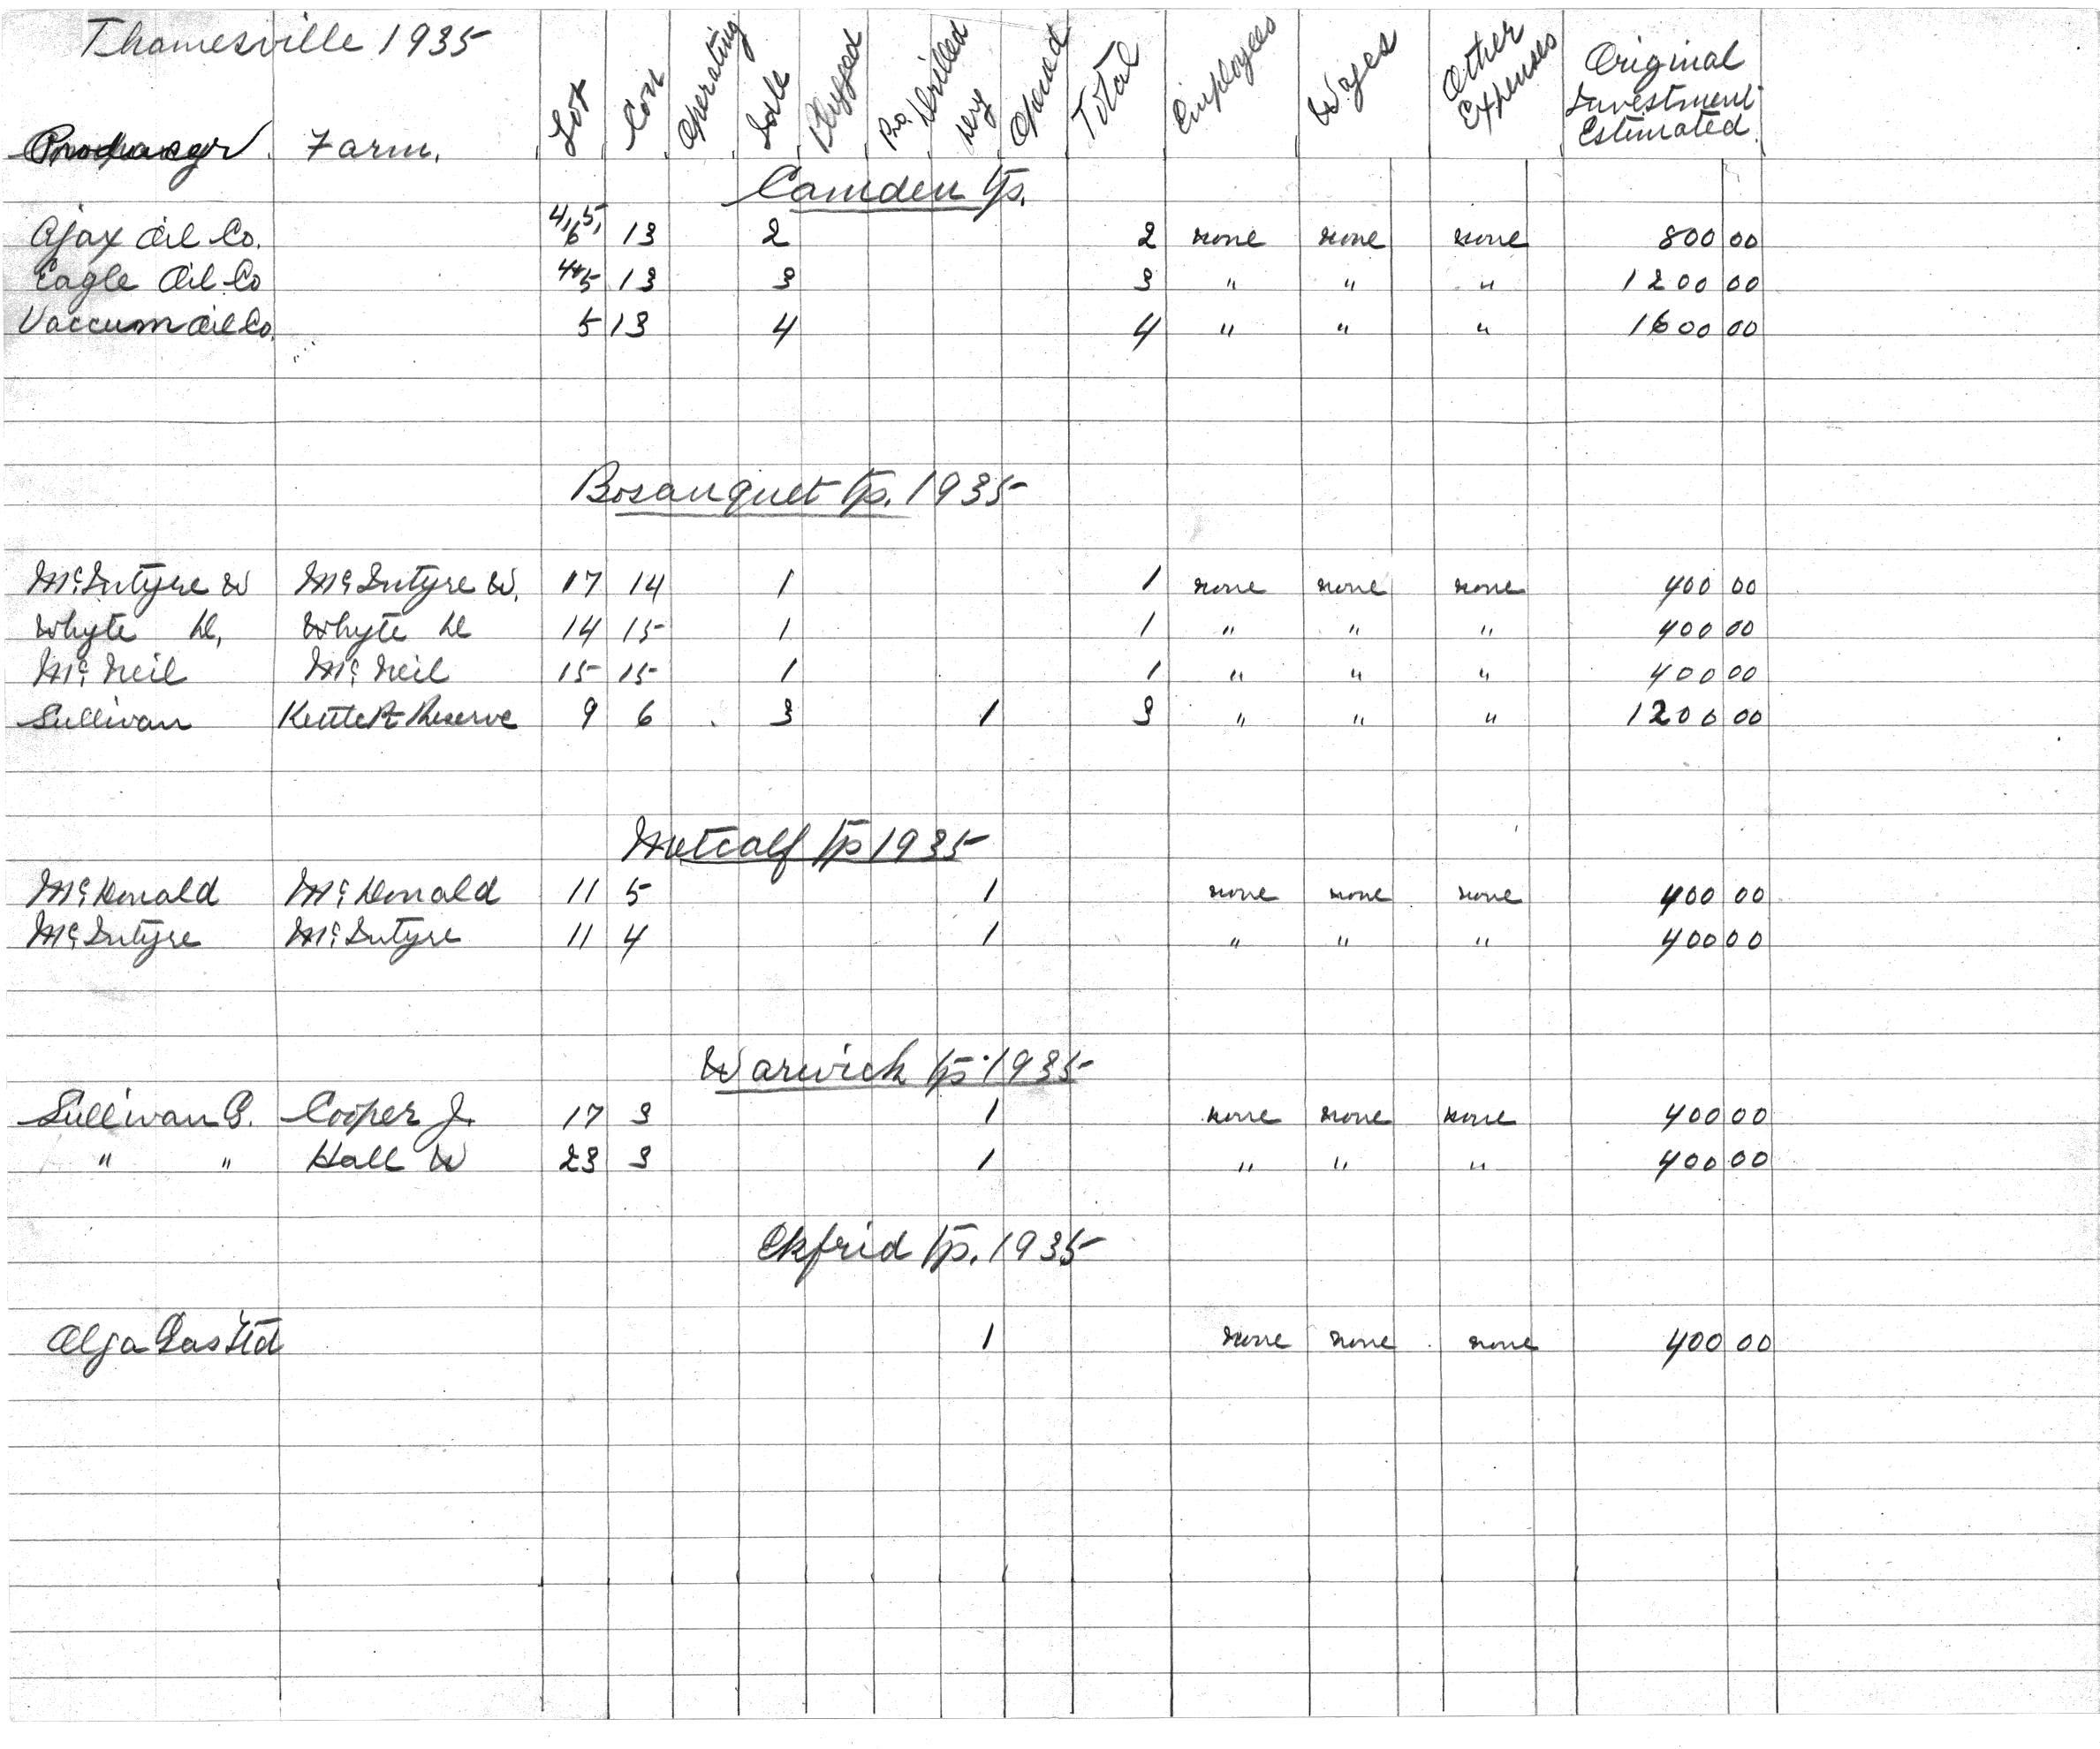 Thamesville 1935
Producer Farm. Lot Con Operating Idle Plugged Pro. Drilled Dry Opened Total Employees Wages Other Expenses Original Investment Estimated
Camden Tp.
Ajax Oil Co. 4,5,6 13 2 2 none none none 800 00
Eagle Oil Co 4+5 13 3 3 " " " 1200 00
Vaccum Oil Co. 5 13 4 4 " " " 1600 00
Bosanquet Tp. 1935
McIntyre W McIntyre W. 17 14 1 1 none none none 400 00
Whyte D, Whyte D 14 15 1 1 " " " 400 00
McNeil McNeil 15 15 1 1 " " " 400 00
Sullivan Kettle Pt Reserve 9 6 3 1 3 " " " 1200 00
Metcalf Tp 1935
McDonald McDonald 11 5 1 none none none 400 00
McIntyre McIntyre 11 4 1 " " " 400 00
Warwick Tp. 1935
Sullivan P. Cooper J. 17 3 1 none none none 400 00
" " Hall W 23 3 1 " " " 400 00
Ekfrid Tp. 1935
Olga Gas Ltd 1 none none none 400 00